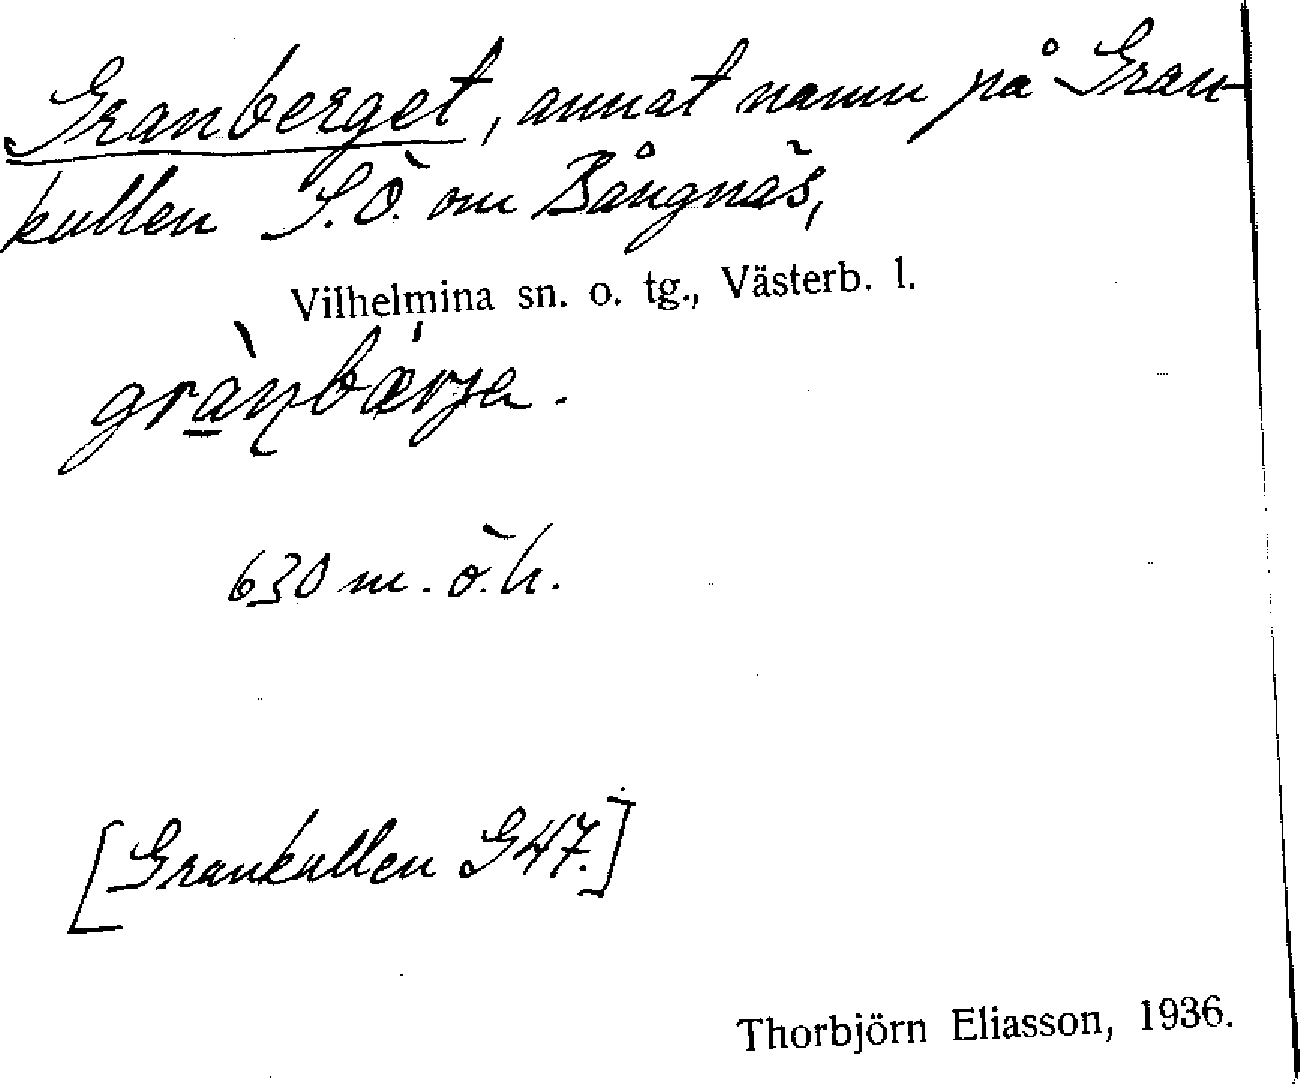 Granberget, annat namn på Gran-
kullen S.Ö. om Bångnäs,
Vilhelmina sn. o. tg., Västerb. l.
630 m. ö. h.
[Grankullen G47.]
Thorbjörn Eliasson, 1936.